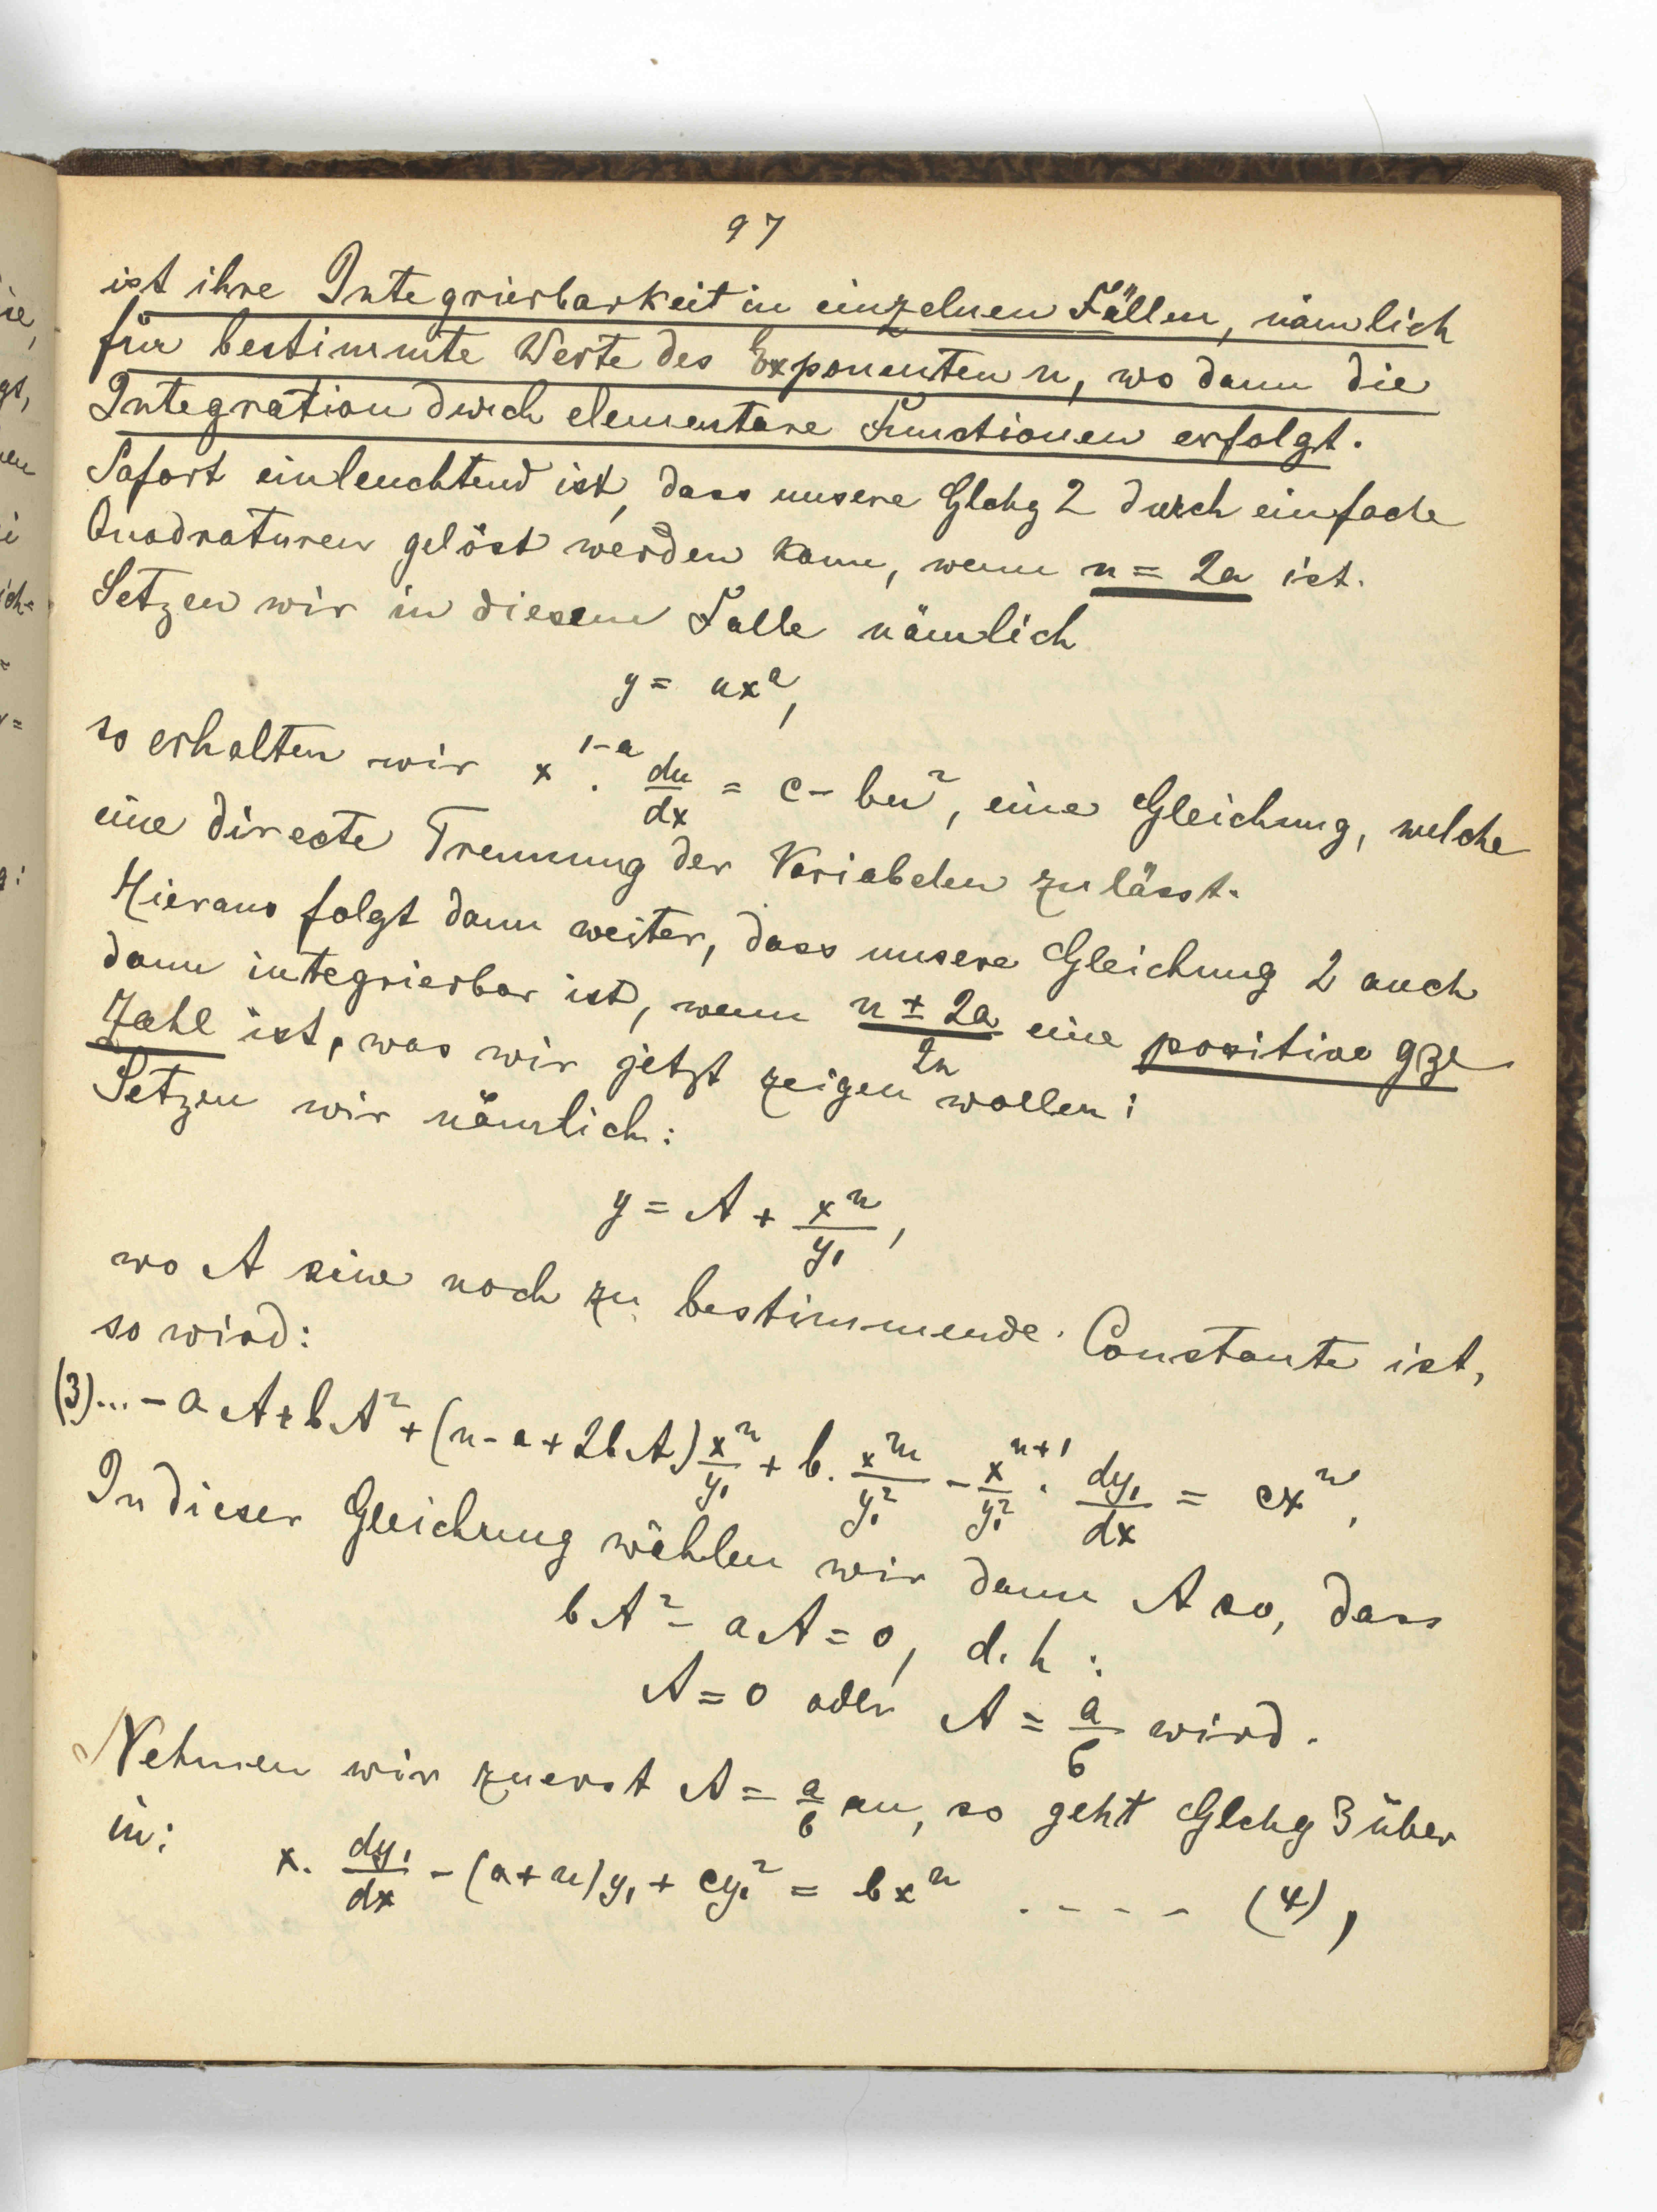 97
ist ihre Integrierbarkeit in einzelnen Fällen, nämlich
für bestimmte Werte des Exponenten n, wo dann die
Integration durch elementare Functionen erfolgt.
Sofort einleuchtend ist, dass unsere Glchg 2 durch einfache
Quadraturen gelöst werden kann, wenn n = 2a ist.
Setzen wir in diesem Falle nämlich
y = ux^a,
so erhalten wir x^{1-a} · du/dx = c - bu², eine Gleichung, welche
eine directe Trennung der Variabelen zulässt.
Hieraus folgt dann weiter, dass unsere Gleichung 2 auch
dann integrierbar ist, wenn (n ± 2a)/2n eine positive gze
Zahl ist, was wir jetzt zeigen wollen:
Setzen wir nämlich:
y = A + x^n/y₁,
wo A eine noch zu bestimmende Constante ist,
so wird:
(3)... - aA + bA² + (n - a + 2bA) x^n/y₁ + b · x^{2n}/y₁² - x^{n+1}/y₁² · dy₁/dx = cx^n,
In dieser Gleichung wählen wir dann A so, dass
bA² - aA = 0, d. h:
A = 0 oder A = a/b wird.
Nehmen wir zuerst A = a/b an, so geht Glchg 3 über
in:
x · dy₁/dx - (a+n)y₁ + cy₁² = bx^n - - - - (4),